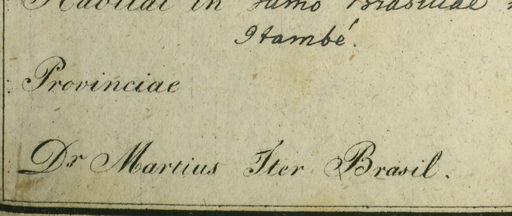 Habitat in sumo Brasiliae
Itambé.
Provinciae
Dr Martius Iter Brasil.